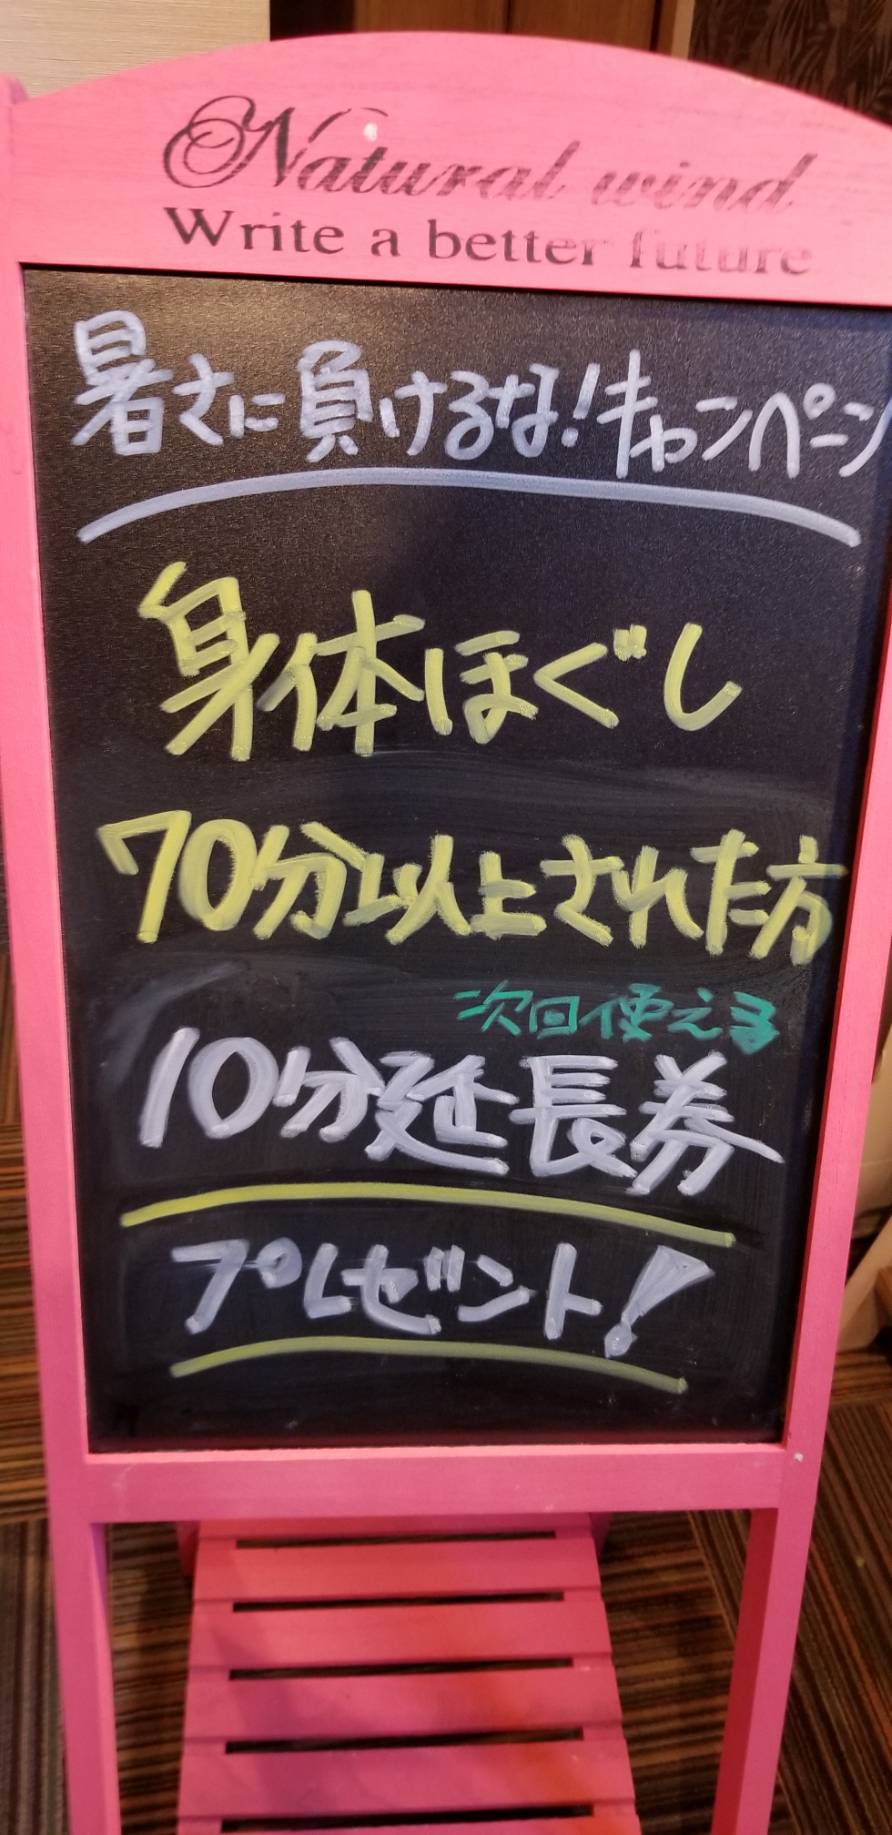 Natural wind
Write a better future
暑さに負けるな!キャンペーン
身体ほぐし
70分以上された方
次回使える
10分延長券
プレゼント!